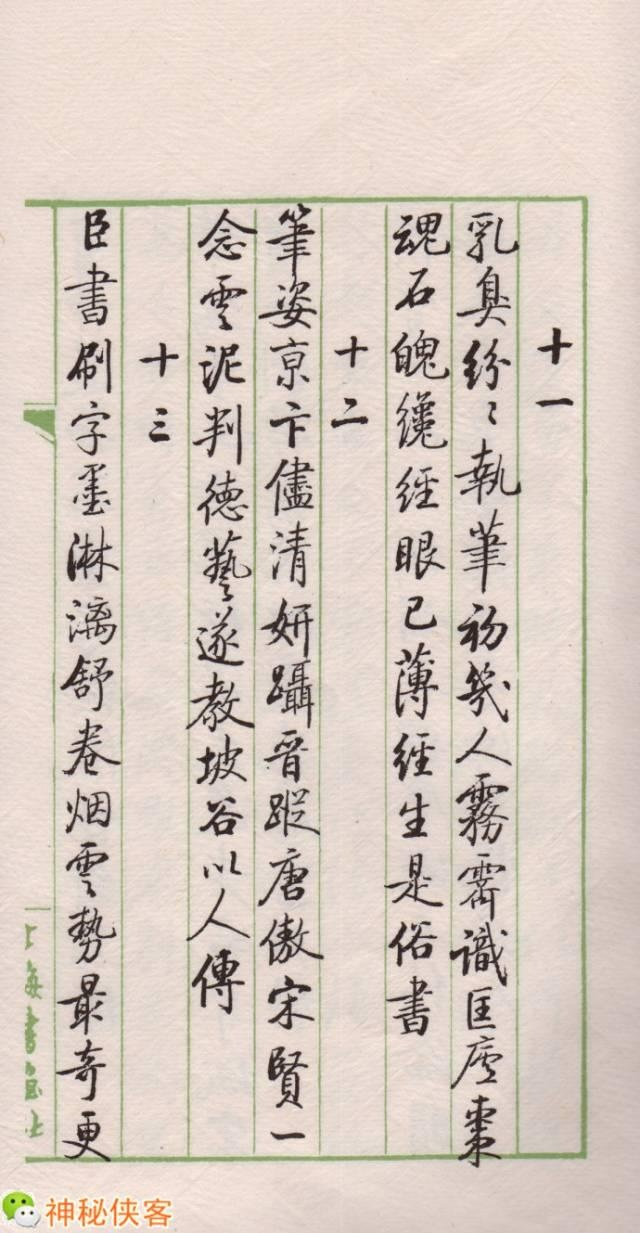 十一
乳臭纷〻執筆初幾人霧霽識匡廬棗
魂石魄纔經眼已薄經生是俗書
十二
筆姿京卞儘清妍躡晉蹤唐傲宋賢一
念雲泥判德藝遂教坡谷以人傳
十三
臣書刷字墨淋漓舒卷烟雲勢最奇更
上海書画社
神秘侠客